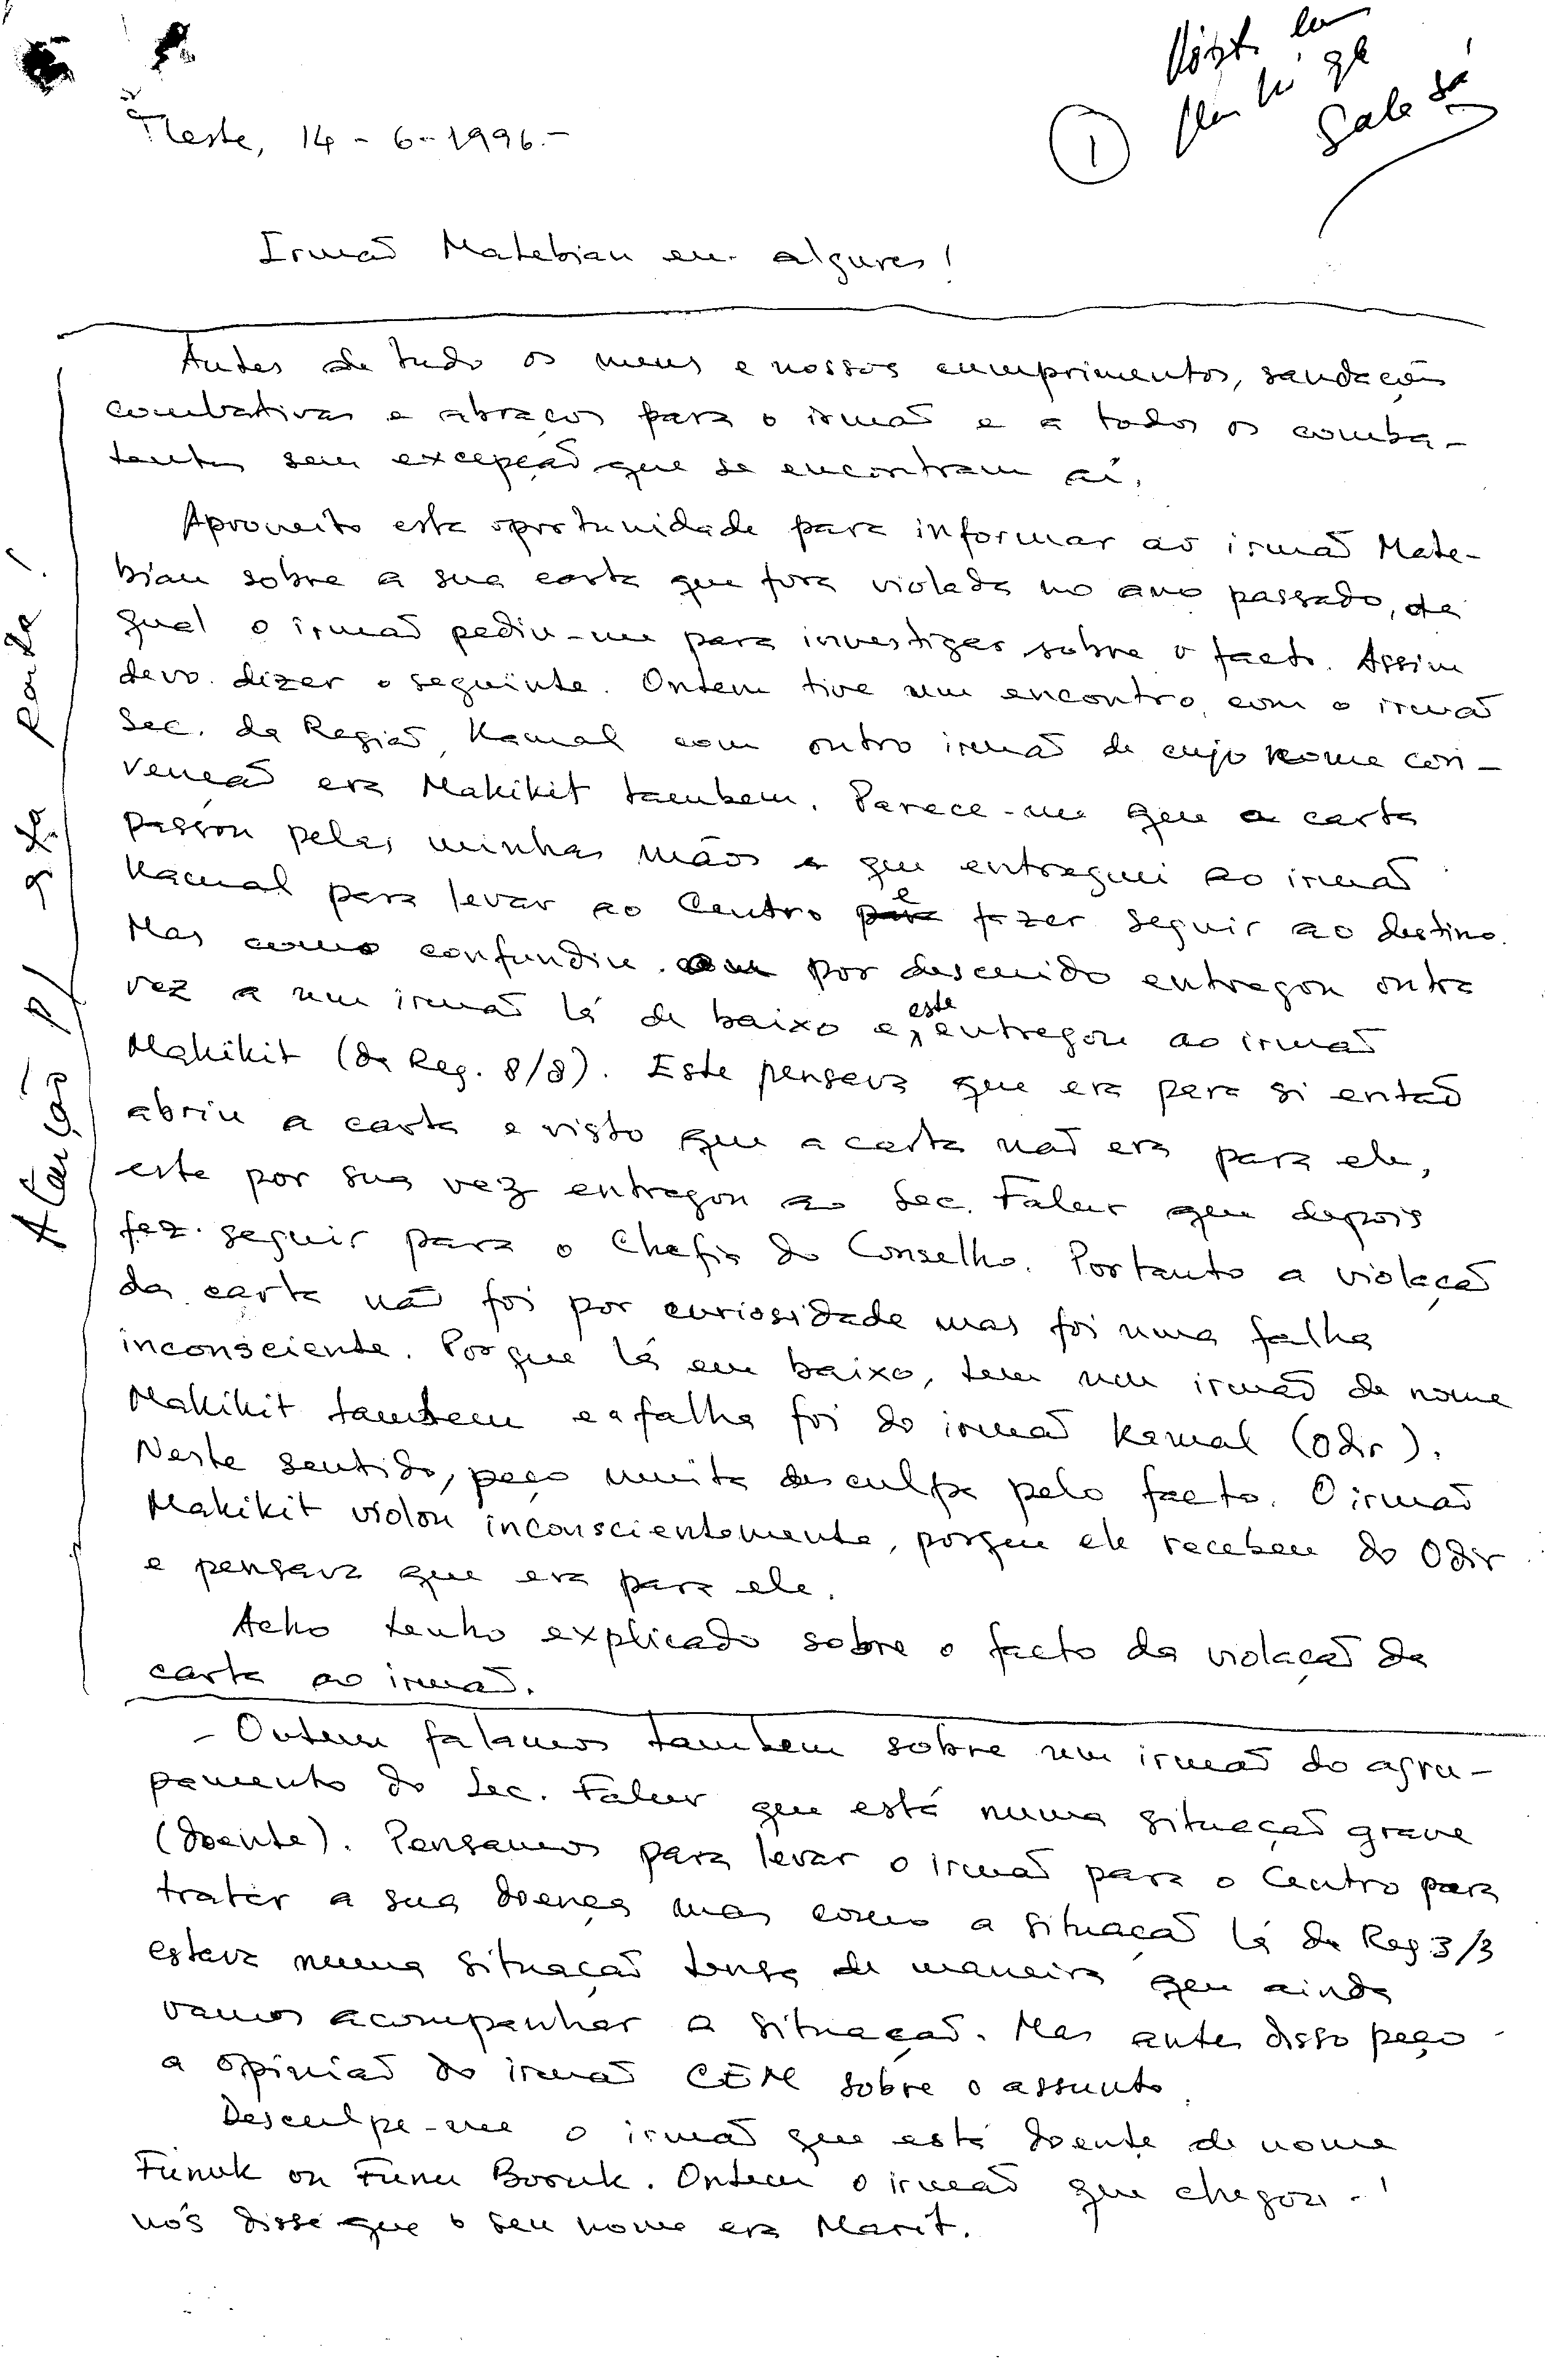 ①
Tleste, 14-6-1996.-
Irmaõ Matebian em algures!
Antes de tudo os meus e nossos cumprimentos, saudações
combativas e abraços para o irmaõ e a todos os comba-
tentes sem excepçaõ que se encontram aí.
Aproveito esta oportunidade para informar ao irmaõ Mate-
bian sobre a sua carta que fora violada no ano passado, da
qual o irmaõ pediu-me para investigar sobre o facto. Assim
devo dizer o seguinte. Ontem tive um encontro com o irmaõ
Sec. da Regiaõ, Kamal com outro irmaõ de cujo nome con-
vençaõ era Makikit tambem. Parece-me que a carta
passou pelas minhas mãos e que entreguei ao irmaõ
Kamal para levar ao Centro e fazer seguir ao destino.
Mas como confundiu por descuido entregou outra
vez a um irmaõ lá de baixo e, este entregou ao irmaõ
Makikit (da Reg. 8/8). Este pensava que era para si entaõ
abriu a carta e visto que a carta naõ era para ele,
este por sua vez entregou ao Sec. Falur que depois
fez seguir para o Chefia do Conselho. Portanto a violaçaõ
da carta não foi por curiosidade mas foi uma falha
inconsciente. Porque lá em baixo, tem um irmaõ de nome
Makikit tambem e a falha foi do irmaõ Kamal (Odir).
Neste sentido, peço muita desculpa pelo facto. O irmaõ
Makikit violou inconscientemente, porque ele recebeu do Odir
e pensava que era para ele.
Acho tenho explicado sobre o facto da violaçaõ da
carta ao irmaõ.
- Ontem falamos tambem sobre um irmaõ do agru-
pamento do Sec. Falur que está numa situaçaõ grave
(doente). Pensamos para levar o irmaõ para o Centro para
tratar a sua doença mas como a situaçaõ lá da Reg 3/3
estava numa situaçaõ tensa de maneira que ainda
vamos acompanhar a situaçaõ. Mas antes disso peço
a opiniaõ do irmaõ CEM sobre o assunto.
Desculpe-me o irmaõ que está doente de nome
Funuk ou Funu Bosuk. Ontem o irmaõ que chegou
nós disse que o seu nome era Marit.
Atençaõ p/ esta parte!